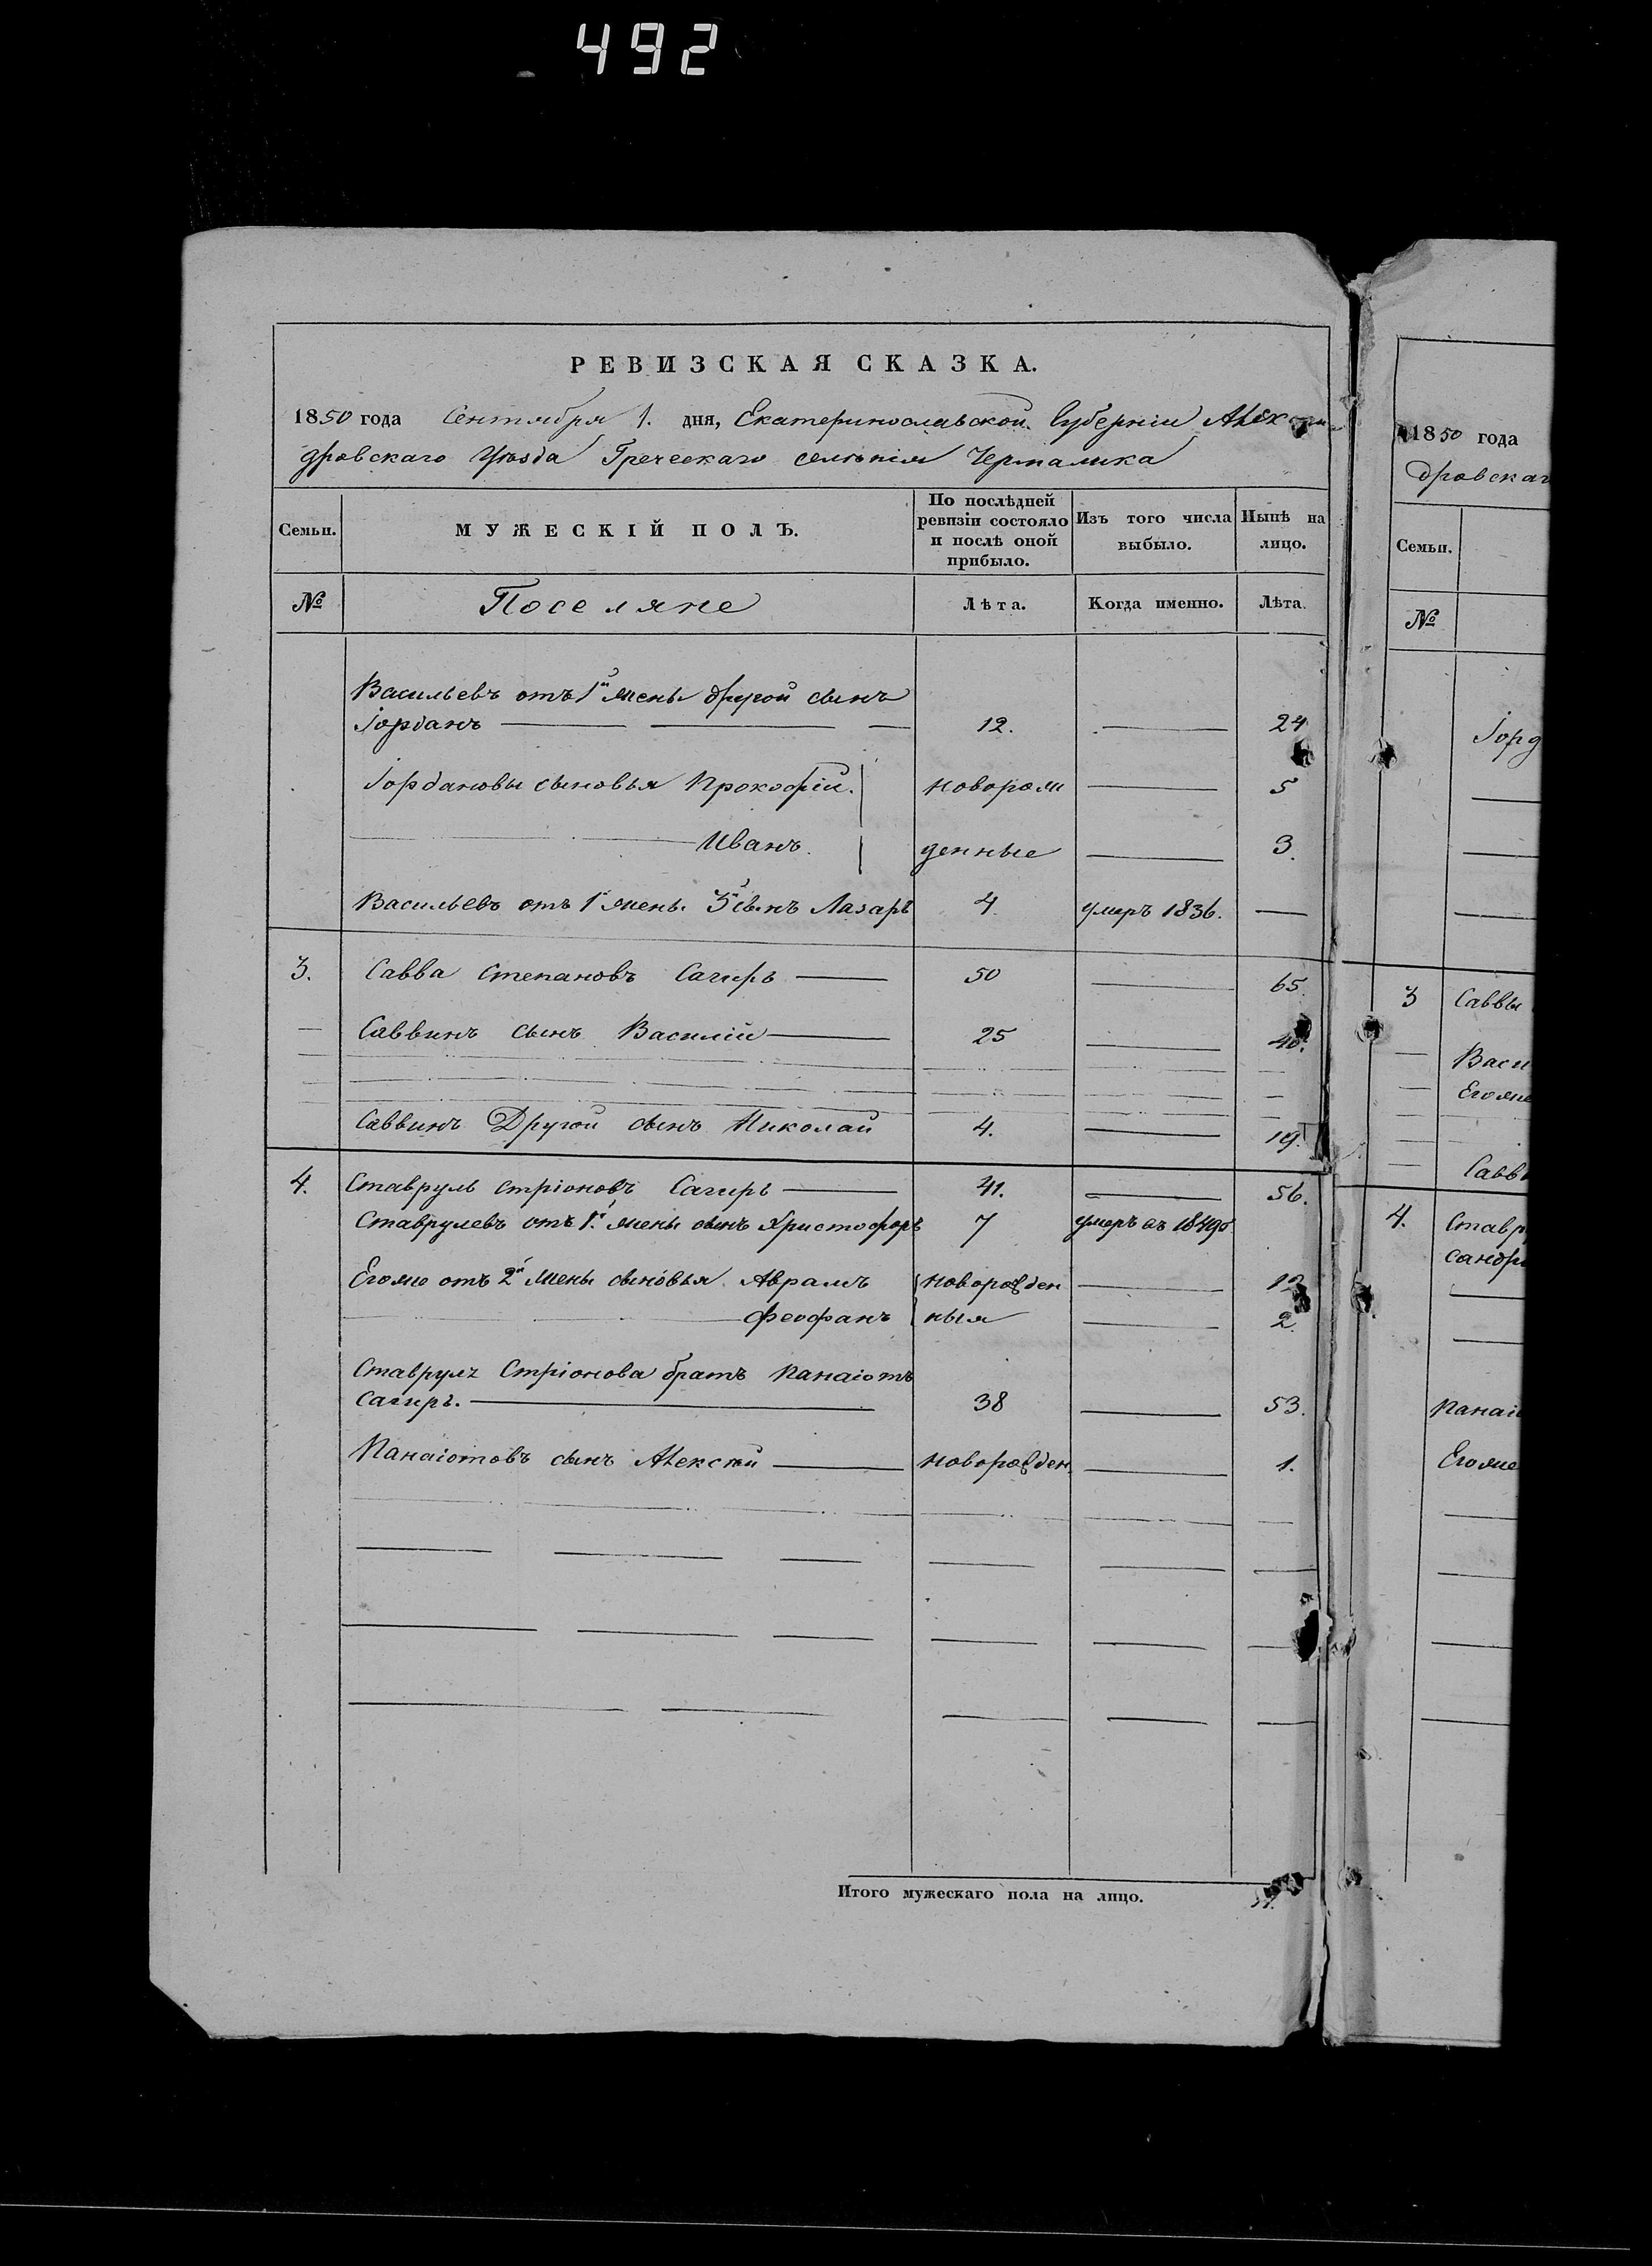 492
РЕВИЗСКАЯ СКАЗКА.
1850 года Сентября 1. дня, Екатеринославской Губерніи Алексан-
дровскаго Уѣзда Греческаго селѣнія Чермалика
Семьи. МУЖЕСКІЙ ПОЛЪ. По послѣдней ревизіи состояло и послѣ оной прибыло. Изъ того числа выбыло. Нынѣ на лицо.
№ Поселяне Лѣта. Когда именно. Лѣта.
Васильевъ отъ 1й жены другой сынъ
Іорданъ 12. 24
Іордановы сыновья Прокофій новорож 5
Иванъ денные 3.
Васильевъ отъ 1й жены 3й сынъ Лазарь 4 умеръ 1836.
3. Савва Степановъ Сагиръ 50 65.
Саввинъ сынъ Василій 25 40.
Саввинъ Другой сынъ Николай 4. 19.
4. Ставруль Стріоновъ Сагиръ 41. 56.
Ставрулевъ отъ 1й жены сынъ Христофоръ 7 умеръ въ
Егоже отъ 2й жены сыновья Аврамъ новорожден
Феофанъ ныя 2.
Ставруль Стріонова братъ Панаіотъ
Сагиръ. 38 53.
Панаіотовъ сынъ Алексѣй новорожден 1.
Итого мужескаго пола на лицо.
1850 года
дровскаг
Семьи.
№
Іорд
3 Саввы
Васи
Егоже
Савви
4. Ставр
сандр
Панаі
Егоже